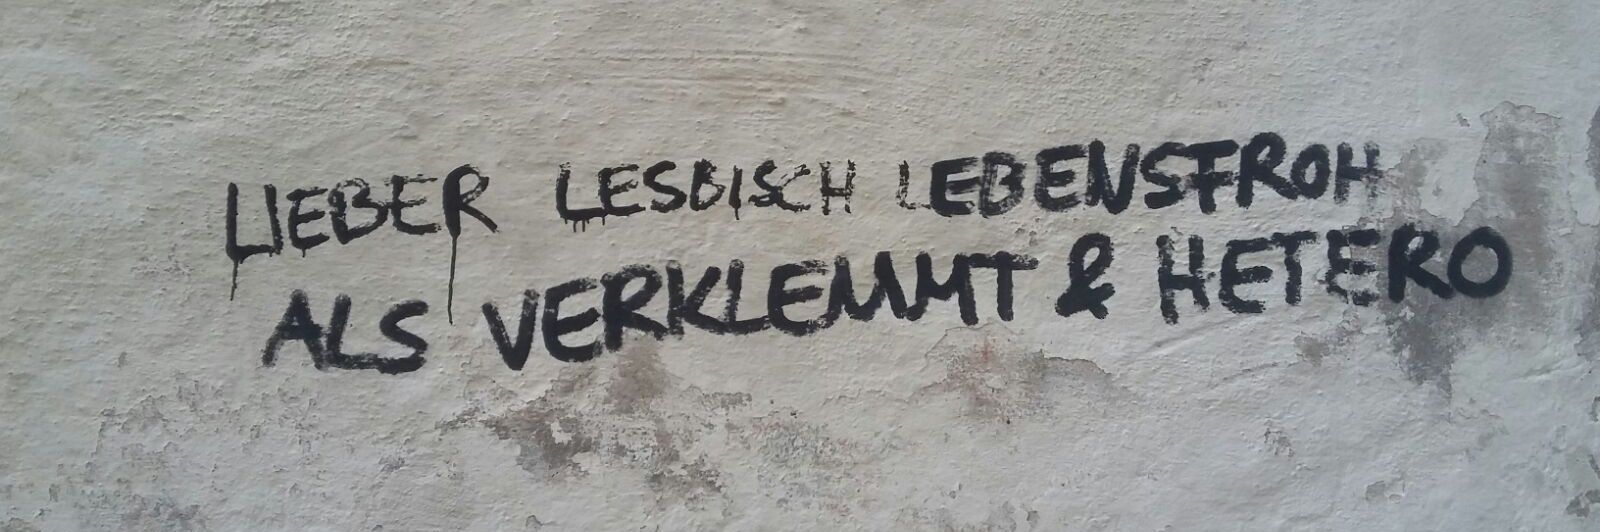 LIEBER LESBISCH LEBENSFROH
ALS VERKLEMMT & HETERO